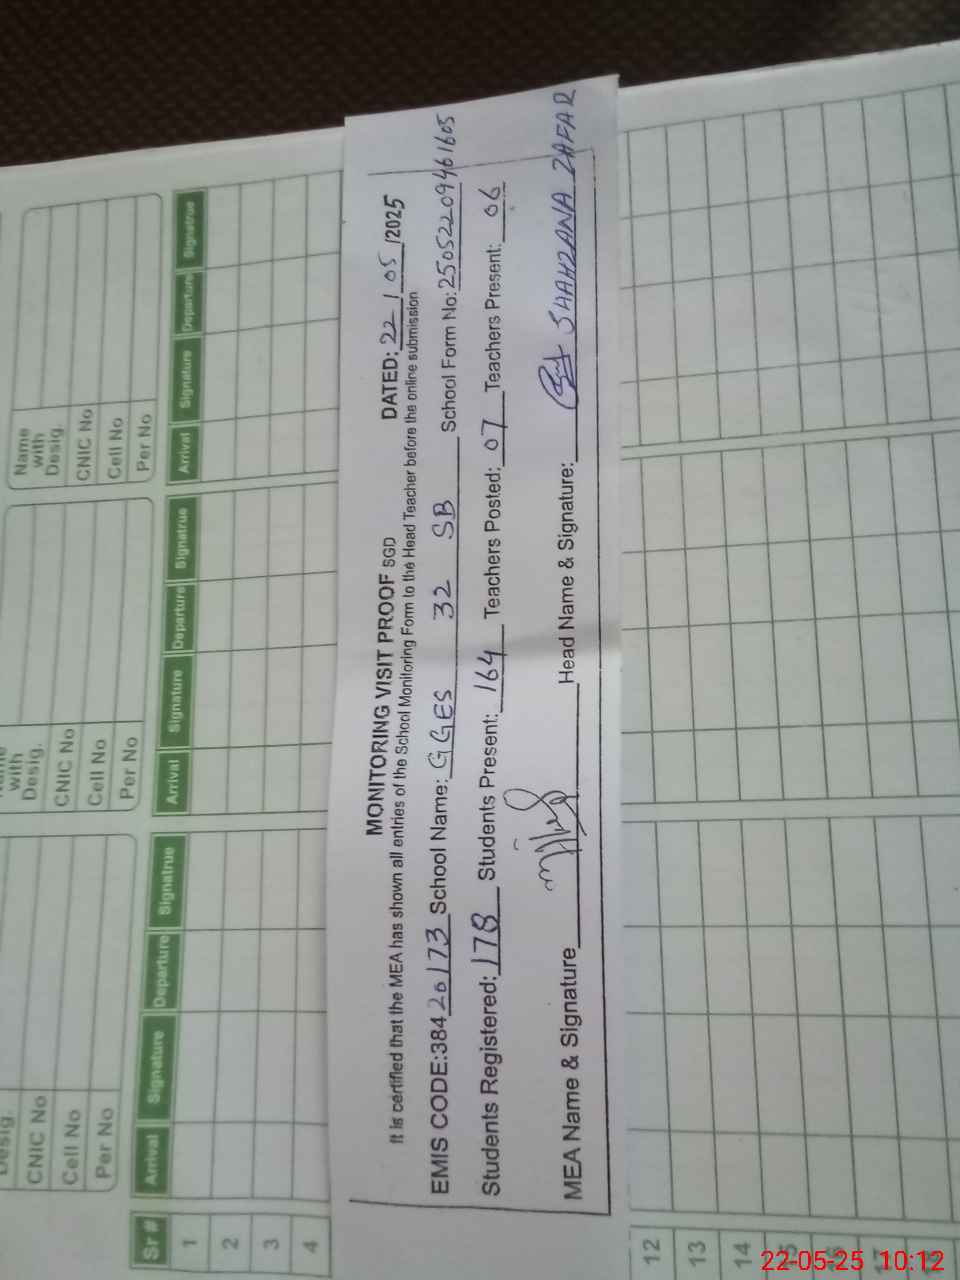 MONITORING VISIT PROOF SGD DATED: 22/05/2025
It is certified that the MEA has shown all entries of the School Monitoring Form to the Head Teacher before the online submission
EMIS CODE:38420173 School Name: GGES 32 SB School Form No: 25052209461605
Students Registered: 178 Students Present: 164 Teachers Posted: 07 Teachers Present: 06
MEA Name & Signature Head Name & Signature: SHAHZANA ZAFAR
Desig.
CNIC No
Cell No
Per No
with
Desig.
CNIC No
Cell No
Per No
Name
with
Desig.
CNIC No
Cell No
Per No
Sr # Arrival Signature Departure Signatrue Arrival Signature Departure Signatrue Arrival Signature Departure Signatrue
1
2
3
4
12
13
14
15
16
17
18
22-05-25 10:12